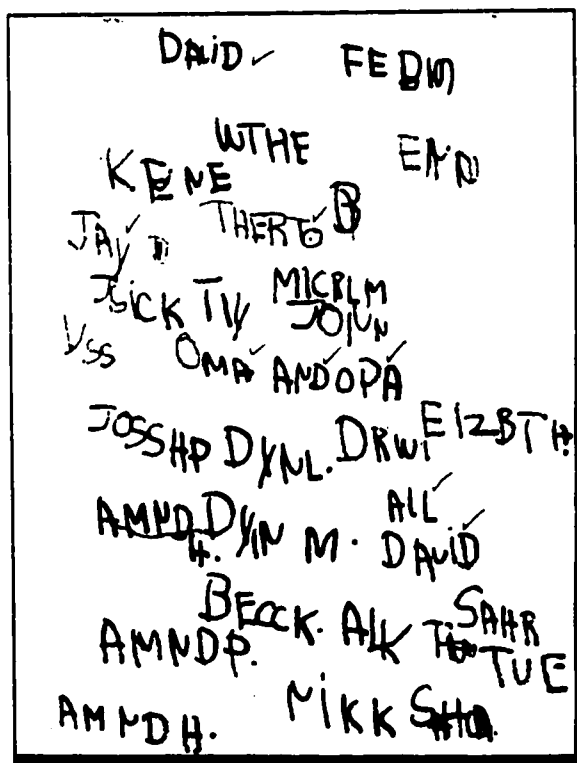 DAViD ✓ FEDM
WTHE EN'D
KENE
JAY ✓ D THERTO ✓ B
JSiCK TY MICRLM
JOIUN
YSS OMA ✓ AND ✓ OPA ✓
JOSSHP DYNL. DRWI EIZBTH.
AMND H. DYIN M. All ✓
DAViD ✓
BECCK. AlK SAHR
AMNDP. TUE
AMNDH. NiKK